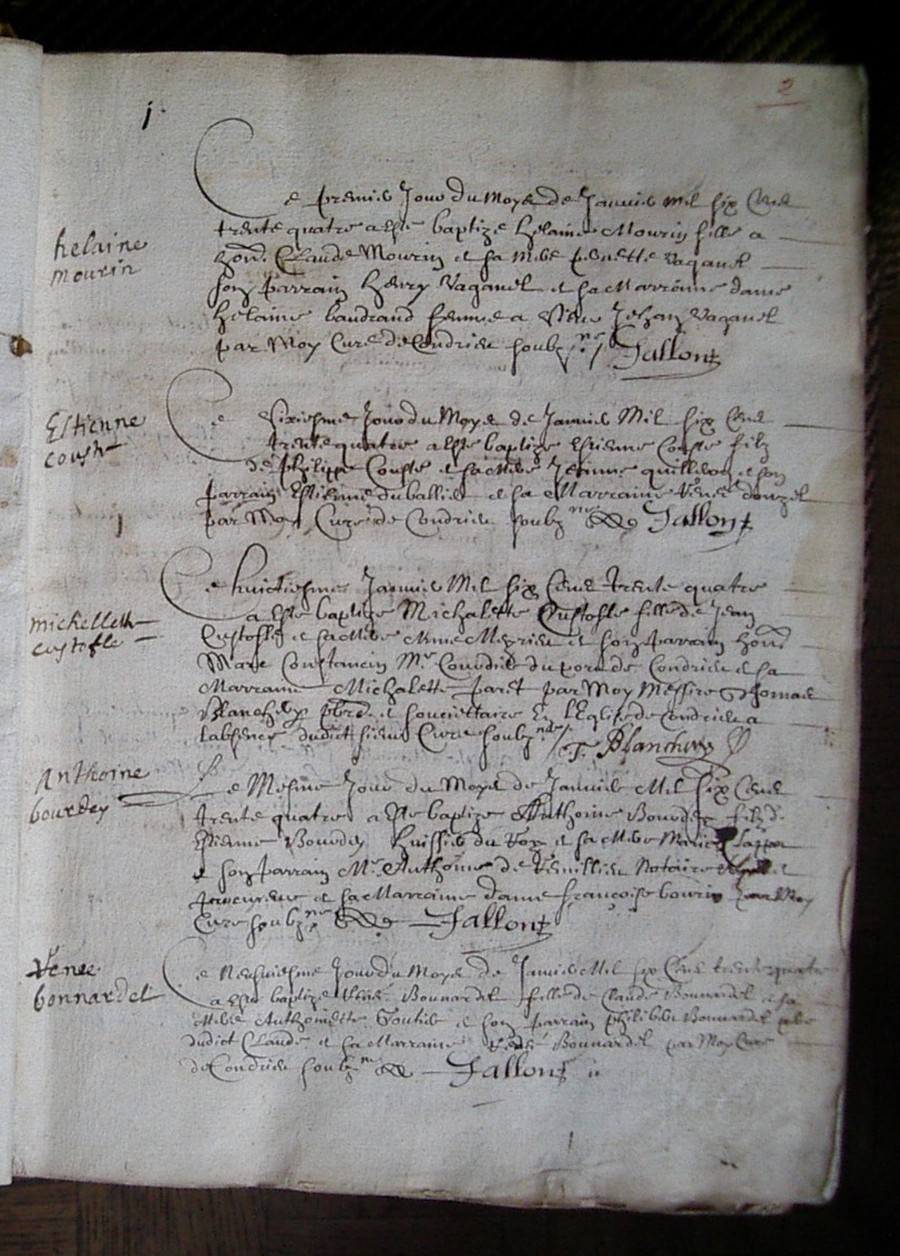 2
j.
helaine
mourin
Ce premier Jour du Moys de Januier Mil six Cens
trente quatre a esté baptize helaine Mourin fille a
hon. Claude Mourin et sa Mere Vaganel
son parrain henry Vaganel et sa Marrainne dame
helaine baudrand femme a Jehan Vaganel
par Moy Curé de Condrieu soubz.ne Fallon
Estienne
couste
Ce sixiesme Jour du Moys de Januier Mil six Cens
trente quatre a esté baptize Estienne Couste filz
de Philippe Couste et sa Mere Jeanne et son
parrain Estienne duballier et sa Marraine
par Moy Curé de Condrieu soubz.ne Fallon
michellette
custofle
Ce huictiesme Januier Mil six Cens trente quatre
a esté baptize Michalette Custofle fille de Jean
Custofle et sa Mere et son parrain hon.
Constancin Mre du port de Condrieu et sa
Marrainne Michalette par Moy Messire Thomas
Blanchey pbre et societtaire en L'Eglise de Condrieu a
labsence dudict sieur Curé soubz.ne T. Blanchey
Anthoine
bourdey
Le Mesme Jour du Moys de Januier Mil six Cens
trente quatre a esté baptize Anthoine Bourdey filz d.
Estienne Bourdey huissier du Roy et sa Mere Marie
et son parrain Mre Anthoine de Notaire
procureur et sa Marrainne dame françoise bourin par Moy
Curé soubz.ne Fallon
Renee
bonnardel
Ce Neufuiesme Jour du Moys de Januier Mil six Cens trente quatre
a esté baptize Renee Bonnardel fille de Claude Bonnardel et sa
Mere Anthoinette et son parrain Philibert Bonnardel
dudict Claude et sa Marrainne Bonnardel par Moy Curé
de Condrieu soubz.ne Fallon